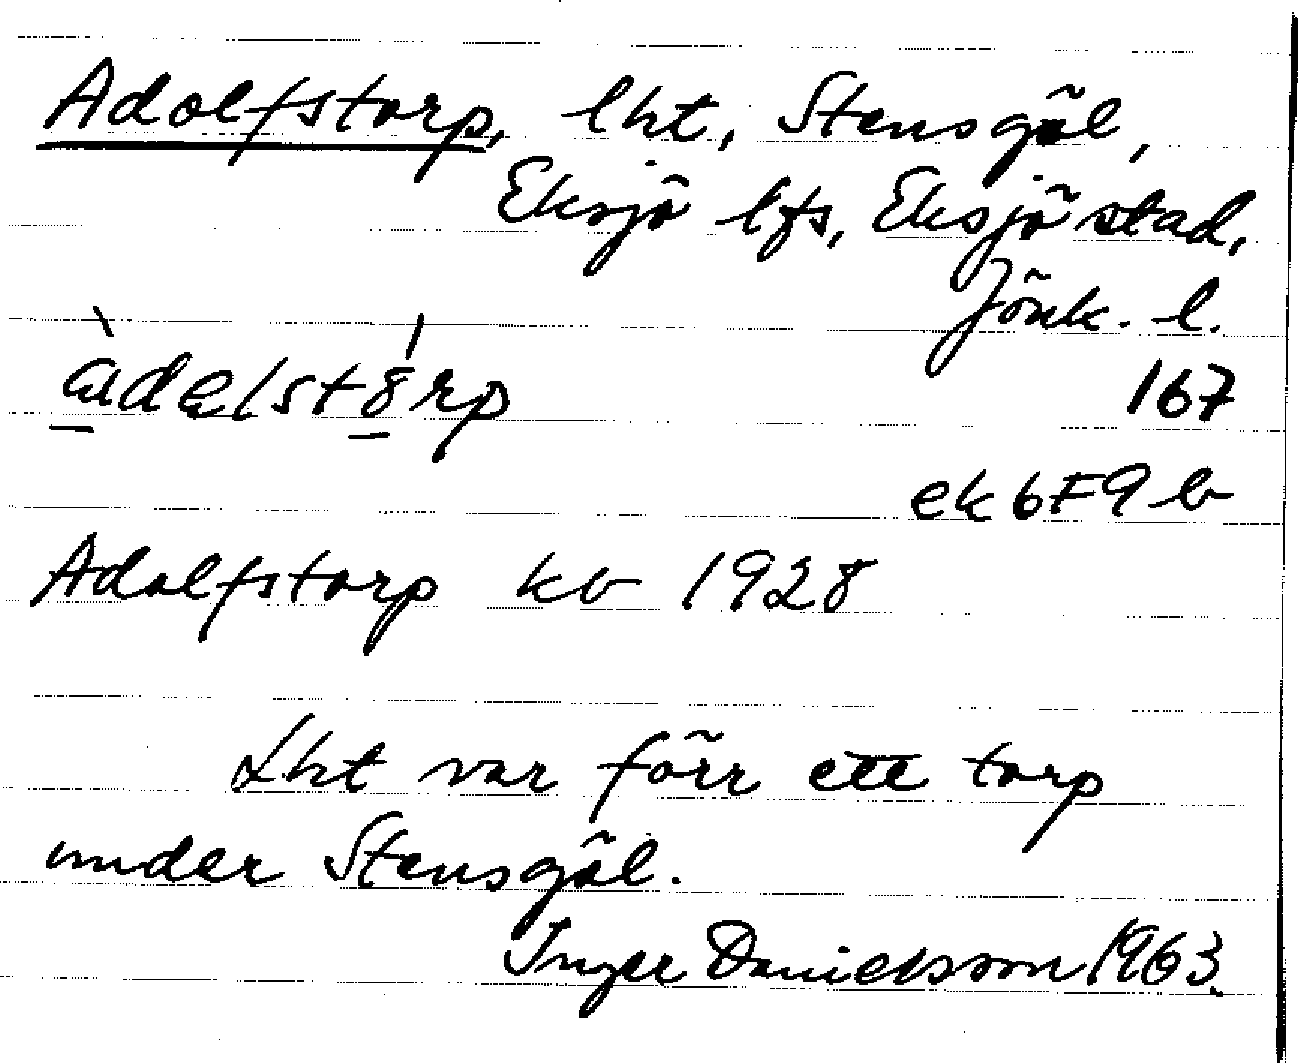 Adolfstorp, lht, Stensgöl,
Eksjö lfs, Eksjö stad,
Jönk. l.
167
ek 6F9 b
Adolfstorp kb 1928
Lht var förr ett torp
under Stensgöl.
Inger Danielsson 1963.